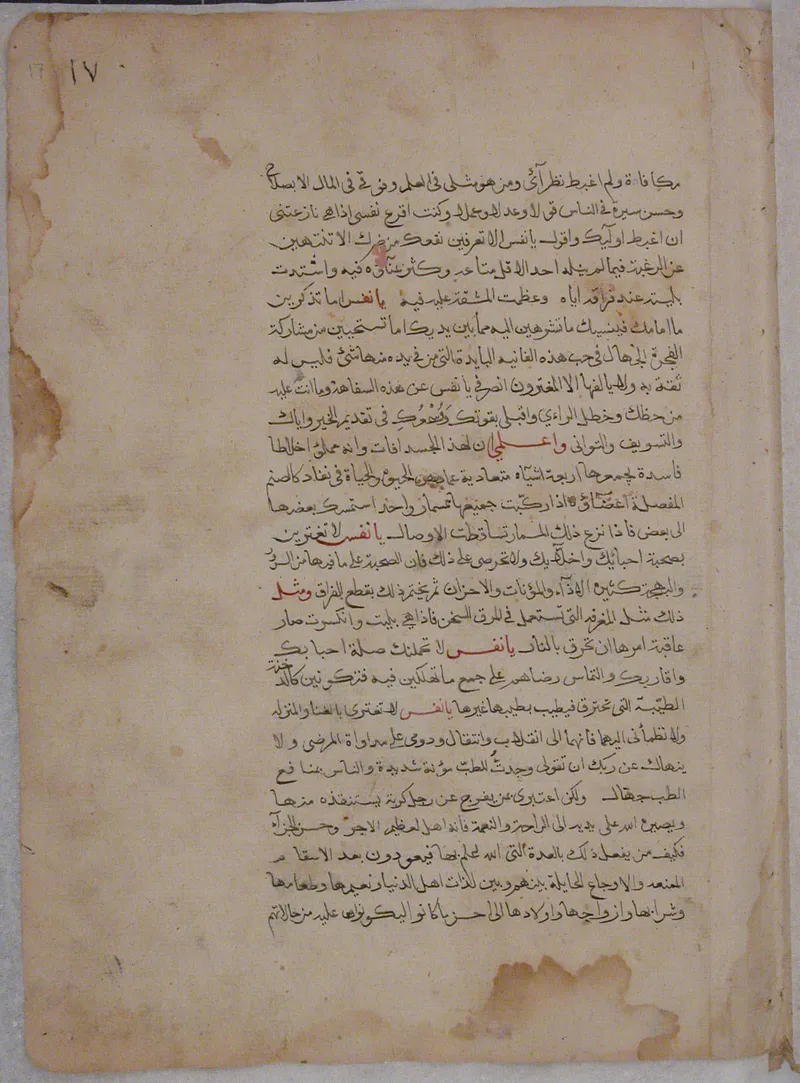 ١٧
مكافاة ولم اغبط نظرآئي ومن هو مثلي في العلم وفوقي في المال الا بصلاح
وحسن سيرة في الناس قولا وعدلا وعملا وكنت اقرع نفسي اذا هي نازعتني
ان اغبط اوليك واقول يا نفس الا تعرفين نفعك من ضرك الا تنتهين
عن الرغبة فيما لم ينله احد الا قل متاعه وكثر عنآؤه فيه واشتدت
بليته عند فراقه اياه وعظمت المشقة عليه فيه يا نفس اما تذكرين
ما امامك فينسيك ما تشرهين اليه مما بين يديك اما تستحيين من مشاركة
الفجرة الجهال في حب هذه الفانيه البايدة التي من في يده منها شئ فليس له
ثقة به ولا يالفها الا المغترون انصرفي يا نفس عن هذه السفاهة وما انت عليه
من حظك وخطل الراءي واقبلي بقوتك في تقديم الخير واياك
والتسويف والتواني واعلمي ان لهذا الجسد افات وانه مملو اخلاطا
فاسدة يجمعها اربعة اشيآء متعادية والحياة في نفاد كالصنم
المفصلة اعضاؤه اذا ركبت جمعها مسمار واحد استمسك بعضها
الى بعض فاذا نزع ذلك المسمار تساقطت الاوصال يا نفس لا تغترين
بصحبة احبائك واخلآئك ولا تحرصي على ذلك فان الصحبة على ما فيها من السرور
والبهجة كثيرة الاذآء والمؤنات والاحزان ثم يختم ذلك بقطع الفراق ومثل
ذلك مثل المغرفه التي تستعمل في المرق السخن فاذا هي بليت وانكسرت صار
عاقبة امرها ان تحرق بالنار يا نفس لا تحملنك صلة احبابك
واقاربك والتماس رضاهم على جمع ما تهلكين فيه فتكونين كالدخنة
الطيبة التي تحترق فيطيب بطيبها غيرها يا نفس لا تغتري بالغنا والمنزله
ولا تطمأني اليهما فانهما الى انقلاب وانتقال ودومي على مداواة المرضى ولا
ينهاك عن ربك ان تقولي وجدت للطب مؤنة شديدة والناس بمنافع
الطب جهال ولكن اعتبري عن يفرج عن رجل كربة يستنقذه منها
ويصيره الله على يديه الى الراحة والنعمة فانه اهل لعظيم الاجر وحسن الجزآء
فكيف من يفعل ذلك بالعدة التي الله فيعودون بعد الاسقام
والاوجاع الحايلة بينهم وبين للذات اهل الدنيا ونعيمها وطعامها
وشرابها وازواجها واولادها الى احسن ما كانوا اليكونوا عليه من حالاتهم